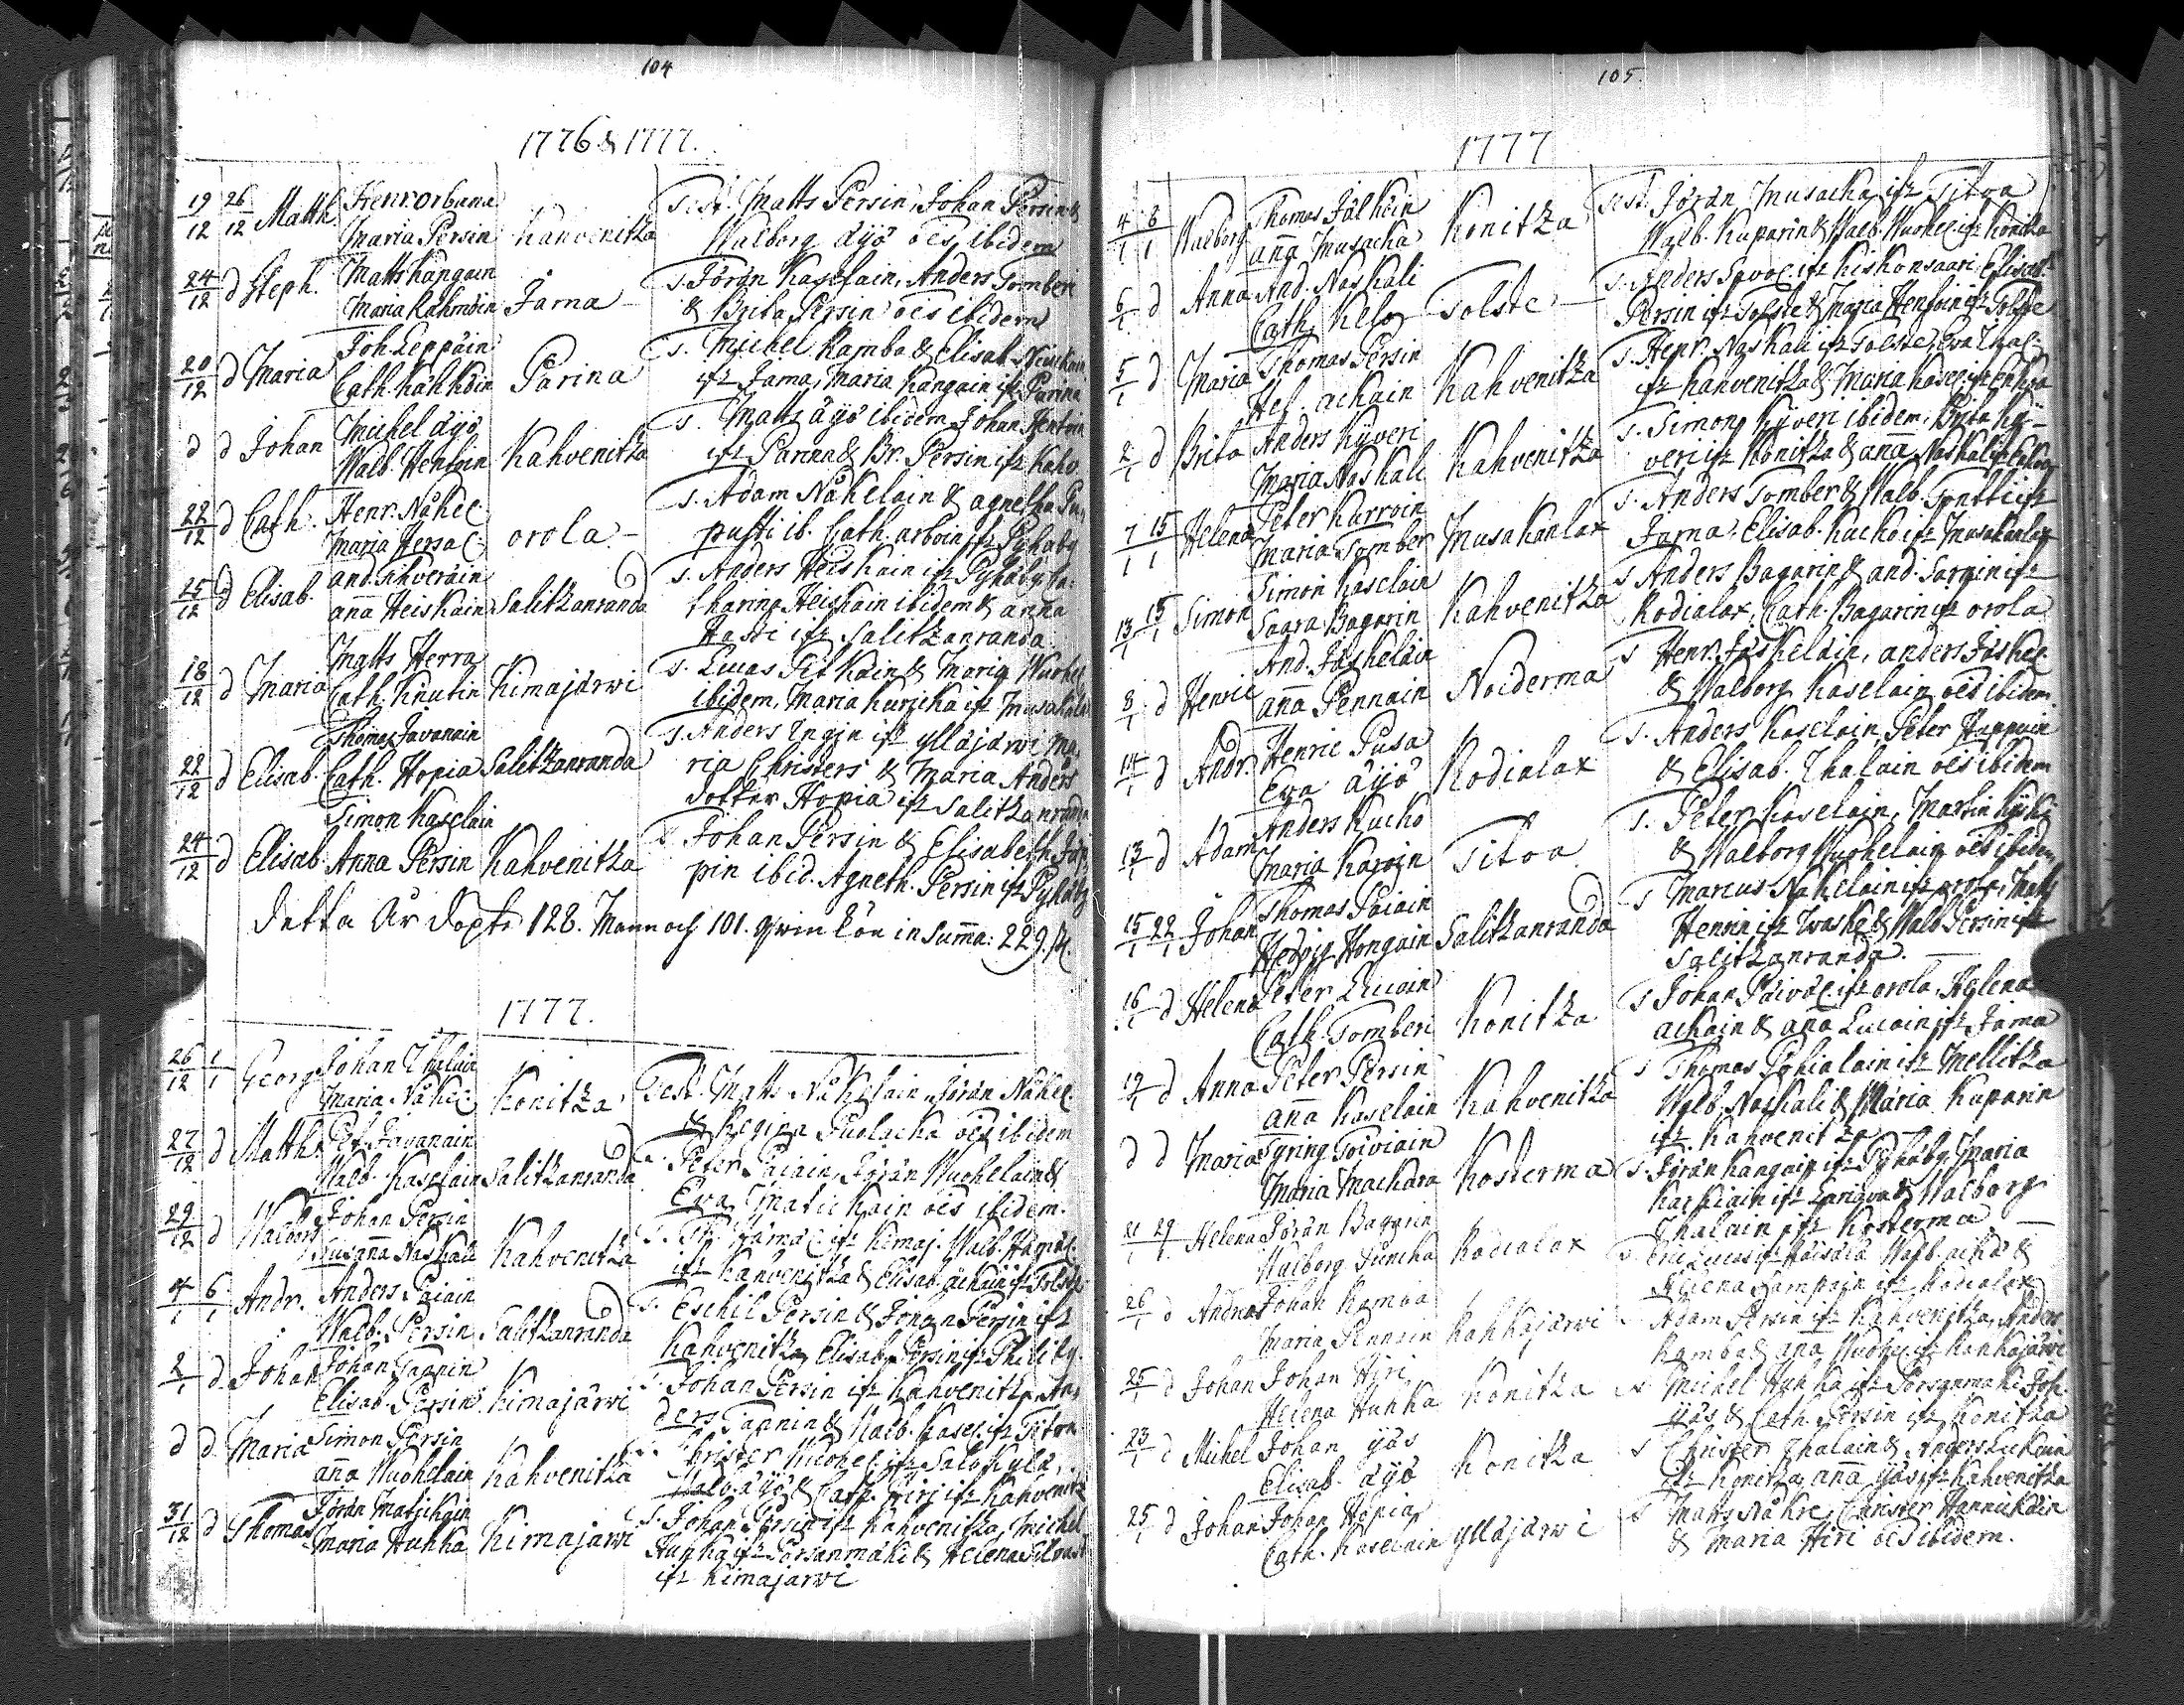 104
1776 & 1777.
19/12 26/12 Matth. Henr. Orbama
Maria Persin Kahvenitza
T. st. Matts Persin, Johan Persin &
Walborg äyö oēs ibidem
24/12 d Steph. Matts Kangain
Maria Rahmöin Jama
T. Jöran Kaselain, Anders Tomberi
& Brita Persin oēs ibidem
20/12 d Maria Joh. Leppäin
Cath. Kähköin Parina
T. Michel Ramba & Elisab.
ifz Jama, Maria Kangain ifz Parina
d d Johan Michel äyö
Walb. Hentoin Kahvenitza
T. Matts äyö ibidem Johan Hentoin
ifz Parina & Br. Persin ifz Kahv.
22/12 d Cath. Henr. Nåkel.
Maria Hersal. orola
T. Adam Nåkelain & agnetha Pu,
pusti ib. Cath. arboin ifz Pyhäby
25/12 d Elisab. and. Sihveräin
anna Heiskain Salitzanranda
T. Anders Heiskain ifz Pyhäby Ca:
tharina Heiskain ibidem & anna
Hassi ifz Salitzanranda
18/12 d Maria Matts Herra
Cath. Knutin Kimajärwi
T. Lucas Pitkäin & Maria Wuohel
ibidem, Maria Kuricka ifz Musakala
22/12 d Elisab. Thomas Javanain
Cath. Hopia Salitzanranda
T. Anders Ingin ifz ylläjärwi Ma,
ria Christers & Maria Anders
dotter Hopia ifz Salitzanranda
24/12 d Elisab. Simon Kaselain
Anna Persin Kahvenitza
T. Johan Persin & Elisabeth Jäp,
pin ibid. Agneth. Persin ifz Pyhäby
Detta År Döpte 128. Mann och 101. qwin kön in Summa: 229. st.
1777.
26/12 1/1 Georg Johan Ihalain
Maria Nåkel. Konitza
Test. Matts Nåkelain, Jöran Nåkel.
& Regina Puolacka oēs ibidem
27/12 d Matth. Pet. Javanain
Walb. Kaselain Salitzanranda
T. Peter Paiain, Jöran Wuohelain &
Eva Matickain oēs ibidem.
29/12 d Walborg Johan Persin
Susanna Naskali Kahvenitza
T. Hämäl. ifz Kimaj. Walb. Hämäl.
ifz Kahvenitza & Elisab. ackain ifz Tolste
4/1 6/1 Andr. Anders Paiain
Walb. Persin Salitzanranda
T. Eschil Persin & Johan Persin ifz
Kahvenitza, Elisab. Persin ifz
2/1 d Johan Johan Tapnin
Elisab. Persin Kimajärwi
T. Johan Persin ifz Kahvenitza, An,
ders Tapnin & Walb. Kasel. ifz Titoa
d d Maria Simon Persin
anna Wuohelain Kahvenitza
T. Christer Wuohel. ifz Salokylä,
Walb. äyö & Cath. Hiri ifz Kahvenitz
31/12 d Thomas Jöran Matickain
Maria Hukka Kimajärwi
T. Johan Persin ifz Kahvenitza, Michel
Hukka ifz Porsanmäki & Helena
ifz Kimajärwi
105.
1777
4/1 6/1 Walborg Thomas Jälköin
anna Musacka Konitza
T. st. Jöran Musacka ifz Titoa
Walb. Kuparin & Walb. Wuohel. ifz Konitza
6/1 d Anna And. Naskali
Cath. Tolste
T. Anders Savol. ifz Kiskonsaari, Elisab.
Persin ifz Tolste & Maria Hentoin ifz Tolste
5/1 d Maria Thomas Persin
Hel. ackain Kahvenitza
T. Henr. Naskali ifz Tolste, Eva Ihal.
ifz Kahvenitza & Maria Kasel. ifz
2/1 d Brita Anders Kyveri
Maria Naskali Kahvenitza
T. Simon Kyveri ibidem, Brita Ky-
veri ifz Konitza & anna Naskali ifz
7/1 15/1 Helena Peter Kurroin
Maria Tomber Musakanlax
T. Anders Tomber & Walb. Tontti ifz
Jama, Elisab. Kucko ifz Musakanlax
13/1 15/1 Simon Simon Kaselain
Saara Bagarin Kahvenitza
T. Anders Bagarin & and. Sarvin ifz
Rodialax, Cath. Bagarin ifz orola
8/1 d Henric And. Jäskeläin
anna Pennain Noiderma
T. Henr. Jäskeläin, anders Jäskel.
& Walborg Kaselain oēs ibidem
14/1 d Andr. Henric Pusa
Eva äyö Rodialax
T. Anders Kaselain, Peter Happoin
& Elisab. Ihalain oēs ibidem
13/1 d Adam Anders Kucko
Maria Karoin Titoa
T. Peter Kaselain, Martin
& Walborg Wuohelain oēs ibidem
15/1 22/1 Johan Thomas Paiain
Hedvig Hongain Salitzanranda
T. Marcus Nåkelain ifz orola, Matts
Hennin ifz & Walb. Persin ifz
Salitzanranda.
16/1 d Helena Peter Lucain
Cath. Tomberi Konitza
T. Johan Päiväl. ifz orola, Helena
ackain & ana Lucain ifz Jama
19/1 d Anna Peter Persin
anna Kaselain Kahvenitza
T. Thomas Pohialain ifz Mellitza
Walb. Naskali & Maria Kuparin
ifz Kahvenitza
d d Maria Tyring Toiviain
Maria Mackara Kosterma
T. Jöran Kangain ifz Pyhäby, Maria
Karkiain ifz & Walborg
Ihalain ifz Kosterma
21/1 29/1 Helena Jöran Bagarin
Walborg Juncka Rodialax
T. Eric Lucas ifz Räisälä Walb. &
Helena Lampain ifz Rodialax
26/1 d Andreas Johan Ramba
Maria Pennain Kahkajärwi
T. Adam Persin ifz Kahvenitza, Anders
Ramba & ana Wuohel. ifz Kahkajärwi
25/1 d Johan Johan Hiri
Helena Hukka Konitza
T. Michel Hukka ifz Porsanmäki Joh.
yäs & Cath. Persin ifz Konitza
23/1 d Michel Johan yäs
Elisab. äyö Konitza
T. Christer Ihalain & Anders Luckain
ifz Konitza, anna yäs ifz Kahvenitza
25/1 d Johan Johan Hopia
Cath. Kaselain ylläjärwi
T. Matts Nåkre, Christer Hannukain
& Maria Hiri oēs ibidem.